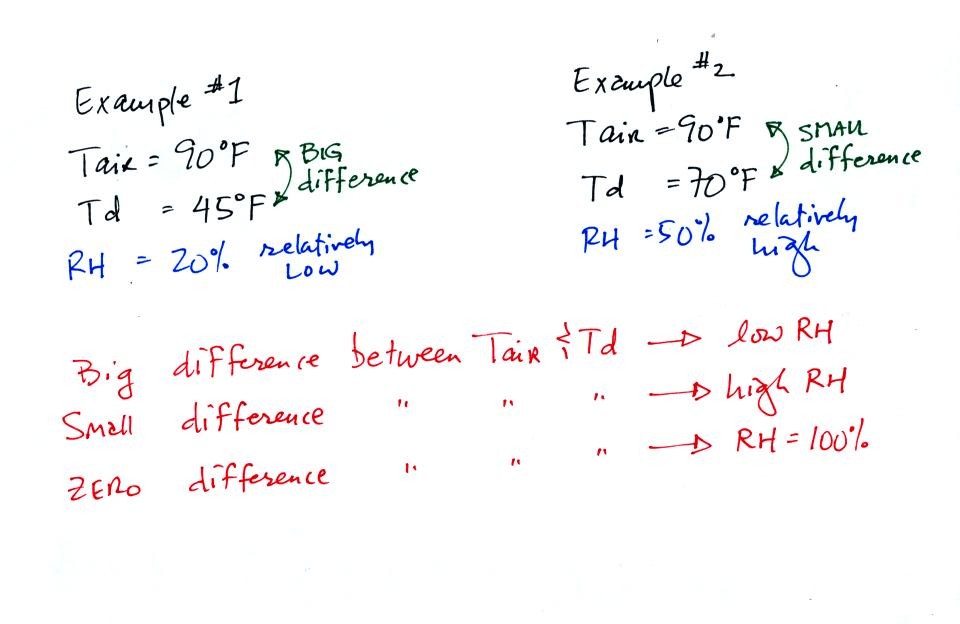 Example #1
Tair = 90°F
BIG difference
Td = 45°F
RH = 20% relatively Low
Example #2
Tair = 90°F
SMALL difference
Td = 70°F
RH = 50% relatively high
Big difference between Tair & Td → low RH
Small difference " " " → high RH
ZERO difference " " " → RH = 100%